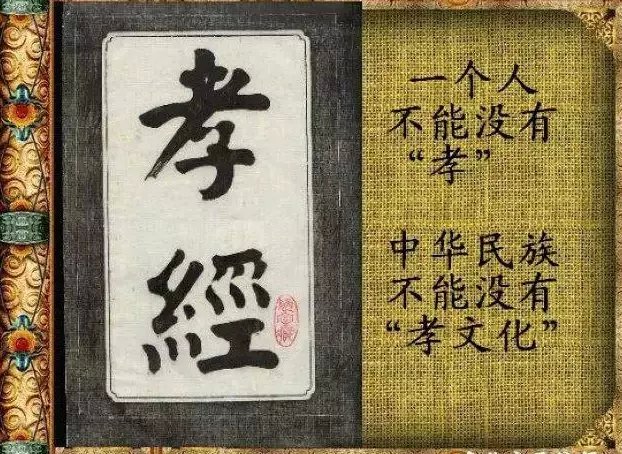 孝
經
一个人
不能没有
“孝”
中华民族
不能没有
“孝文化”